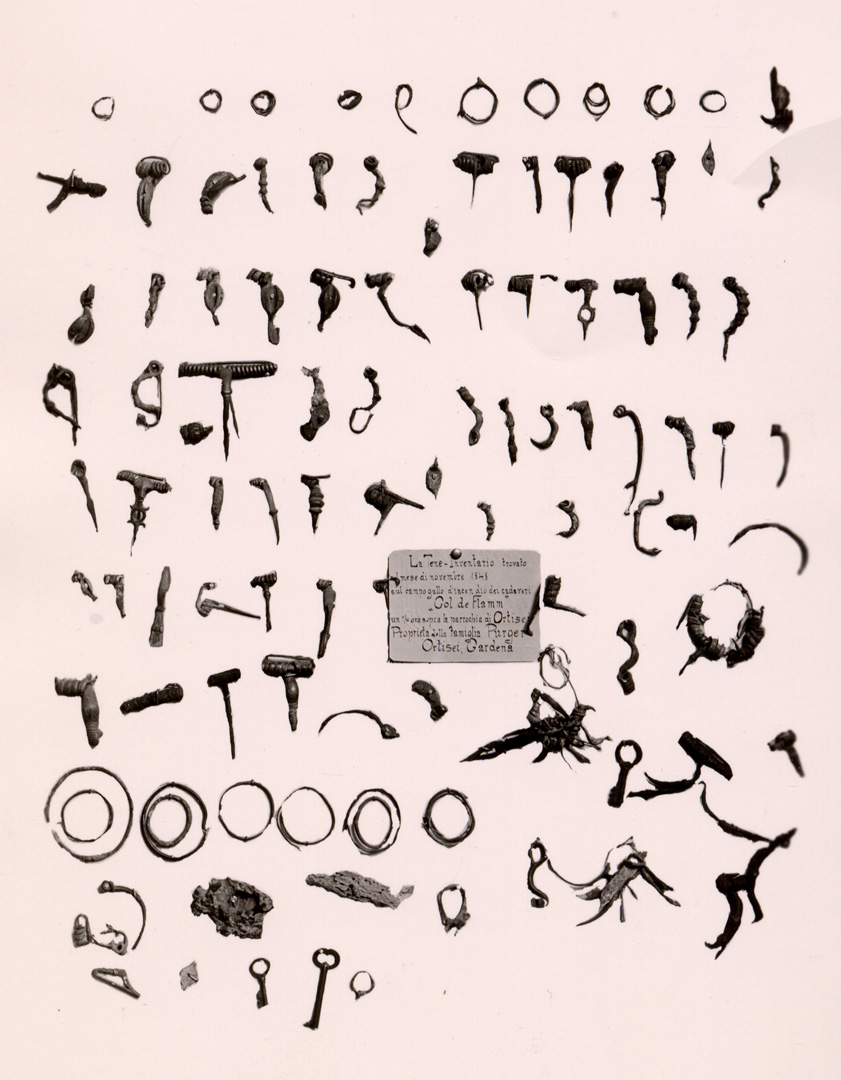 La Tene-Inventario trovato
mese di novembre 1848
sul campo gallo d'incendio dei cadaveri
"Col de Flamm"
un ¼ ora sopra la parrochia di Ortisei
Proprietà della famiglia Purger
Ortisei, Gardena